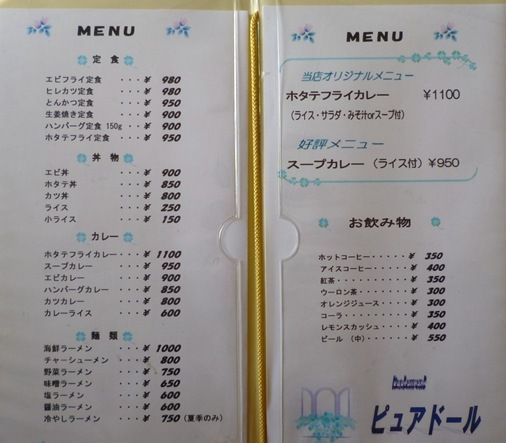 MENU
定食
エビフライ定食 ・・・¥ 980
ヒレカツ定食 ・・・¥ 980
とんかつ定食 ・・・¥ 950
生姜焼き定食 ・・・¥ 900
ハンバーグ定食 150g ・・・¥ 900
ホタテフライ定食 ・・・¥ 950
丼物
エビ丼 ・・・・¥ 900
ホタテ丼 ・・・・¥ 850
カツ丼 ・・・・¥ 800
ライス ・・・・¥ 250
小ライス ・・・・¥ 150
カレー
ホタテフライカレー ・・・・¥ 1100
スープカレー ・・・・¥ 950
エビカレー ・・・・¥ 900
ハンバーグカレー ・・・・¥ 850
カツカレー ・・・・¥ 800
カレーライス ・・・・¥ 600
麺類
海鮮ラーメン ・・・・¥ 1000
チャーシューメン ・・・・¥ 800
野菜ラーメン ・・・・¥ 750
味噌ラーメン ・・・・¥ 650
塩ラーメン ・・・・¥ 600
醤油ラーメン ・・・・¥ 600
冷やしラーメン ・・・・¥ 750 (夏季のみ)
MENU
当店オリジナルメニュー
ホタテフライカレー ¥1100
(ライス・サラダ・みそ汁orスープ付)
好評メニュー
スープカレー (ライス付) ¥950
お飲み物
ホットコーヒー・・・・・・¥ 350
アイスコーヒー・・・・・・¥ 400
紅茶・・・・・・・・・・¥ 350
ウーロン茶・・・・・・・¥ 300
オレンジジュース・・・・¥ 300
コーラ・・・・・・・・・¥ 350
レモンスカッシュ・・・・¥ 400
ビール (中)・・・・・・¥ 550
Restaurant
ピュアドール